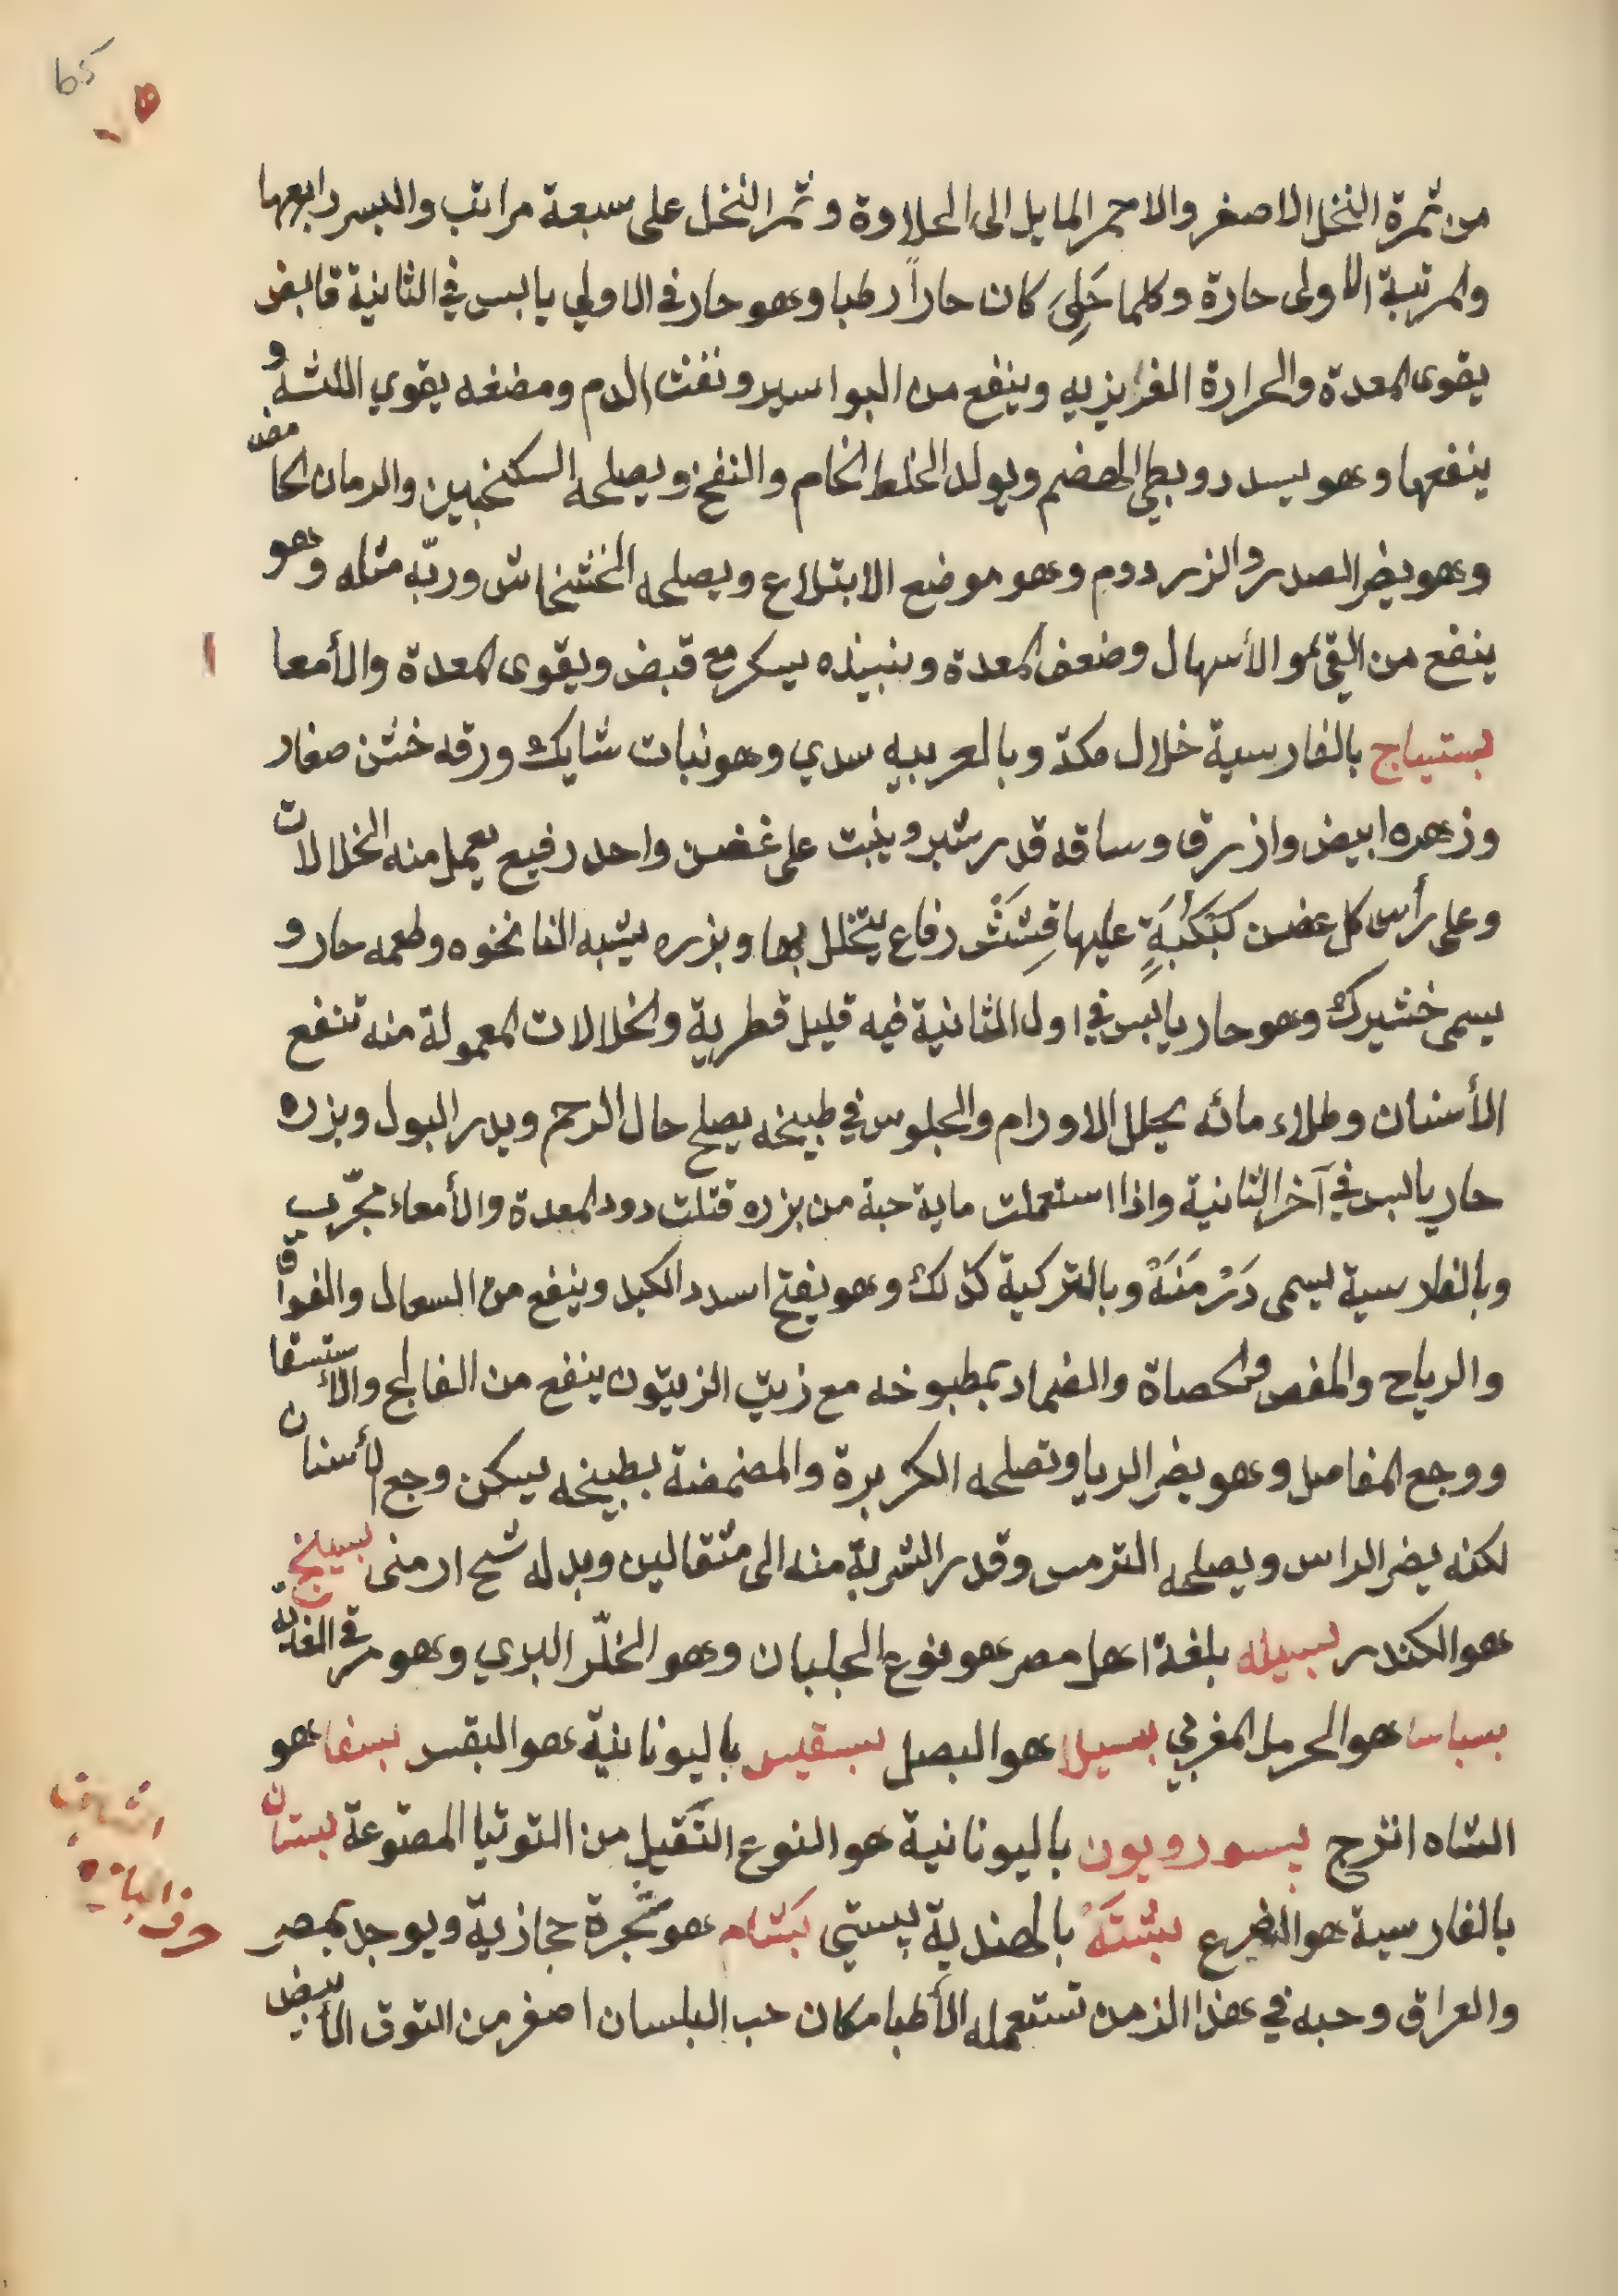 65
من ثمرة النخل الاصفر والاحمر المايل الى الحلاوة وثمر النخل على سبعة مراتب والبسر رابعها
والمرتبة الاولى حارة وكلما حَلِىَ كان حاراً رطبا وهو حار في الاولي يابس في الثانية قابض
يقوى المعدة والحرارة الغزيزيه وينفع من البواسير ونفث الدم ومضغه يقوي اللثة و
ينفعها وهو يسدد ويطي الهضم ويولد الخلط الخام والنفخ ويصلحه السكنجبين والرمان الحامض
وهو يضر الصدر والزردوم وهو موضع الابتلاع ويصلحه الخشخاش وربّه مثله وهو
ينفع من القئ والأسهال وضعف المعدة ونبيذه يسكر مع قبض ويقوى المعدة والأمعا
بستياج بالفارسية خلال مكة وبالعربيه سدي وهو نبات شايك ورقه خشن صغار
وزهره ابيض وازرق وساقه قدر شبر وينبت على غصن واحد رفيع يعمل منه الخلالات
وعلى رأس كل غصن كَبَكْبَةٍ عليها قِشَشْ رفاع يتخلل بها وبزره يشبه النانخوه وطعمه حار و
يسمى خشيرك وهو حار يابس في اول الثانية فيه قليل قطرية والخلالات المعمولة منه تنفع
الأسنان وطلاء مائه يحلل الاورام والجلوس في طبيخه يصلح حال الرحم ويدر البول وبزره
حار يابس في آخر الثانية واذا استعملت ماية حبة من بزره قتلت دود المعدة والأمعاء مجرّب
وبالفارسية يسمى دَرْمَنَهْ وبالتركية كذلك وهو يفتح اسدد الكبد وينفع من السعال والفواق
والرياح والمغص والحصاة والضماد بمطبوخه مع زيت الزيتون ينفع من الفالج والأستسقا
ووجع المفاصل وهو يضر الريا وتصلحه الكزبرة والمضمضة بطبيخه يسكن وجع الأسنان
لكنه يضر الراس ويصلحه الترمس وقدر الشربة منه الى مثقالين وبدله شيح ارمنى بسيلخج
هو الكندر بسيله بلغة اهل مصر هو نوع الجلبان وهو الخلّر البري وهو مر في الغدية
بسباسا هو الحرمل المغربي بسيلا هو البصل بسقيس باليونانيّة هو البقس بسفا هو
الشاه انترج بسوروبون باليونانية هو النوع الثَّقيل من التوتيا المصنوعة بستان
بالفارسية هو الضرع بشتَهْ بالهندية پستي بَشام هو شجرة حجازية ويوجد بمصر
والعراق وحبه في هذا الزمن تستعمله الأطبا مكان حب البلسان اصفر من التوق الأبيض